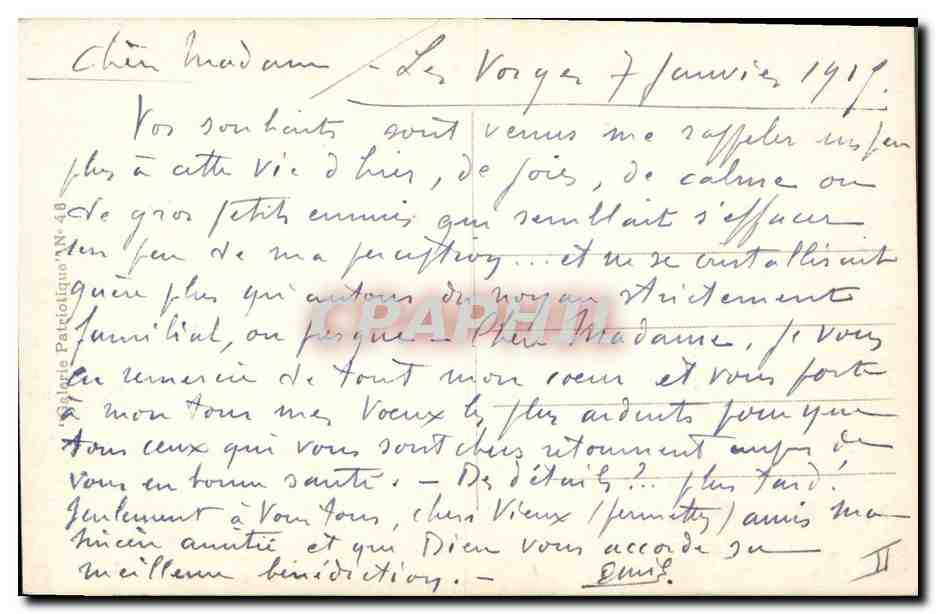 Chère Madame - Les Vosges 7 Janvier 1915.
Vos souhaits sont venus me rappeler un peu
plus à cette vie d'hier, de joies, de calme ou
de gros petits ennuis qui semblait s'effacer
un peu de ma perception... et ne se cristallisait
guère plus qu'autour du noyau strictement
familial, ou presque - Chère Madame, je vous
en remercie de tout mon coeur et vous porte
à mon tour mes Voeux les plus ardents pour que
tous ceux qui vous sont chers retournent auprès de
vous en bonne santé. - Des détails?... plus tard!
Seulement à Vous tous, chers Vieux (permettez) amis ma
sincère amitié et que Dieu vous accorde sa
meilleure bénédiction. - Emile.
II
"Galerie Patriotique" N° 46
CPAPHIL